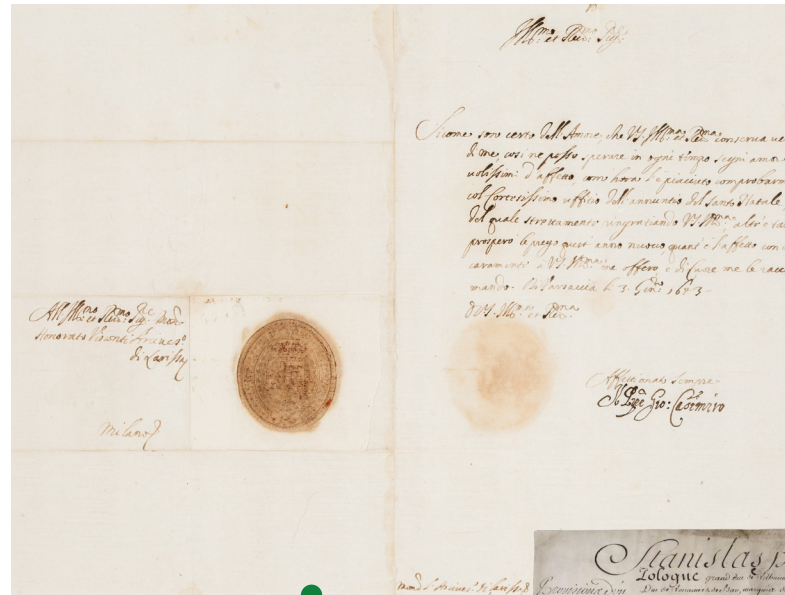 Ill.mo et Rev.mo Sig.
Sicome son certo dell'Amore, che VS. Ill.ma et Rev.ma conserva ve
di me, così ne posso sperare in ogni tempo segni amor
volissimi d'affetto, com'hora s'è piaciuto comprobarm
col Cortesissimo uffitio dell'annuntio del Santo Natale
del quale strettamente ringratiando VS. Ill.ma altr'e ta
prospero le prego quest'anno nuovo quant'è l'affetto con c
caramente à VS. Ill.ma me offero, e di Cuore me le racc
mando. Di Varsavia li 3. Gen.o 1643.
D VS. Ill.ma et Rev.ma
Affettionato sempre
Gio: Casimiro
All'Ill.mo et Rev.mo Sig.
Honorato Visconti Arcives.o
di Larissa
Milano
mons.r Arcives.o di Larissa
Stanislas p
Pologne grand duc de Lithuan
Duc de Lorraine et de Bar, marquis d